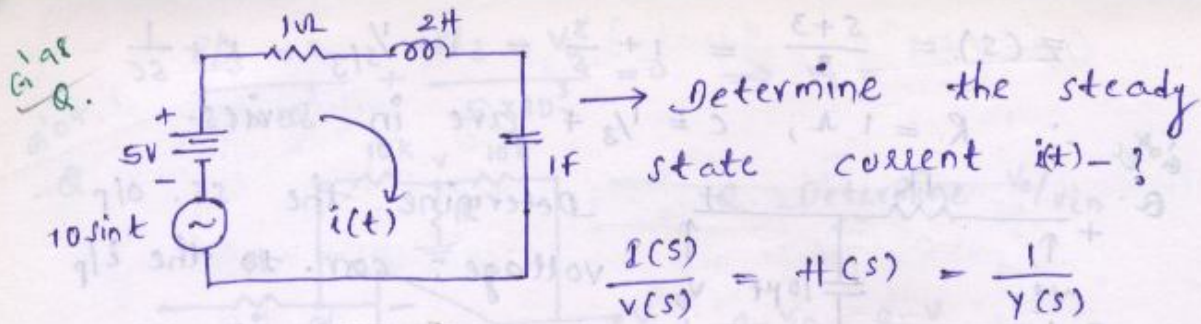 1Ω 2H
Q.
+
5V
-
10 sint
i(t)
1F
→ Determine the steady
state current i(t) - ?
I(S)/V(S) = H(S) = 1/Y(S)